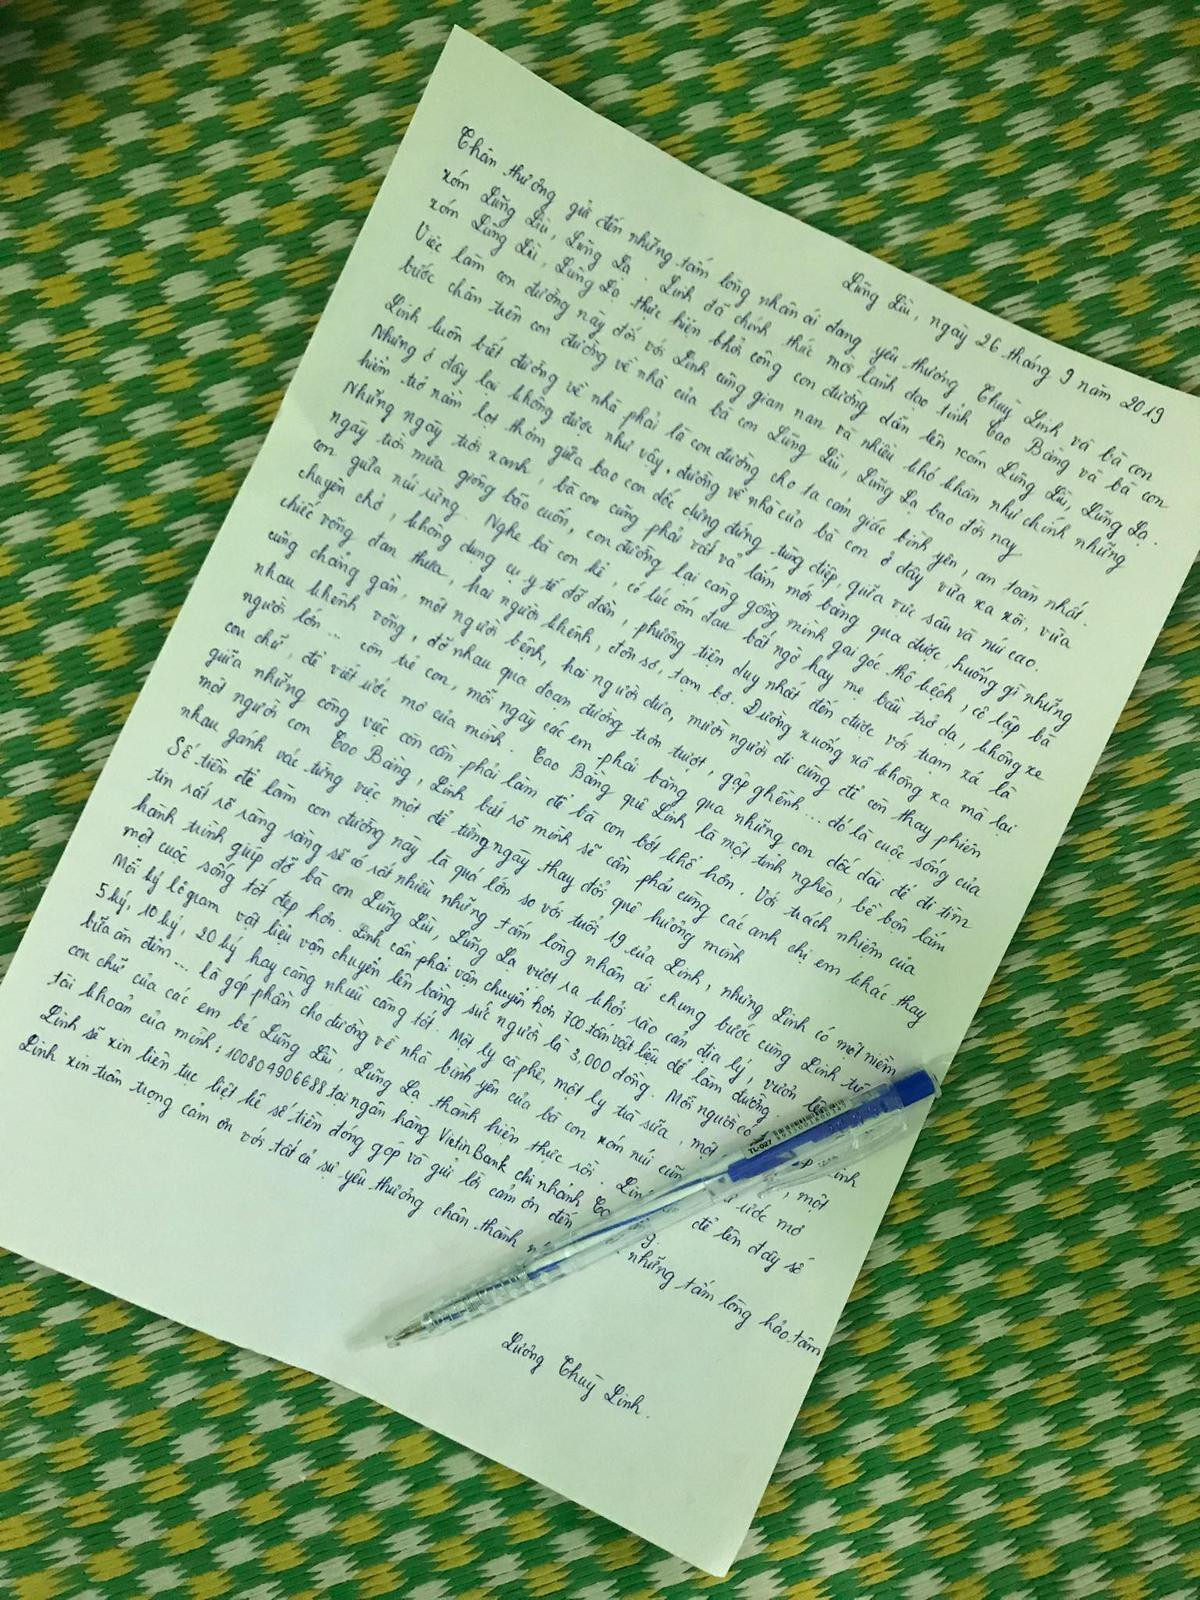 Lũng Lìu, ngày 26 tháng 9 năm 2019
Thân thương gửi đến những tấm lòng nhân ái đang yêu thương Thuỳ Linh và bà con
xóm Lũng Lìu, Lũng Lạ. Linh đã chính thức mời lãnh đạo tỉnh Cao Bằng và bà con
xóm Lũng Lìu, Lũng Lạ thực hiện khởi công con đường dẫn lên xóm Lũng Lìu, Lũng Lạ.
Việc làm con đường này đối với Linh cũng gian nan và nhiều khó khăn như chính những
bước chân trên con đường về nhà của bà con Lũng Lìu, Lũng Lạ bao đời nay
Linh luôn biết đường về nhà phải là con đường cho ta cảm giác bình yên, an toàn nhất.
Nhưng ở đây lại không được như vậy, đường về nhà của bà con ở đây vừa xa xôi, vừa
hiểm trở nằm lọt thỏm giữa bao con dốc dựng đứng trùng điệp, giữa vực sâu và núi cao.
Những ngày trời xanh, bà con cũng phải vất vả lắm mới băng qua được, huống gì những
ngày trời mưa giông bão cuốn, con đường lại càng gồng mình gai góc, thô kệch, cô lập bà
con giữa núi rừng. Nghe bà con kể, có lúc ốm đau bất ngờ hay mẹ bầu trở dạ, không xe
chuyên chở, không dụng cụ y tế đỡ đần, phương tiện duy nhất đến được với trạm xá là
chiếc võng đan thưa, hai người khênh, đơn sơ, tạm bợ. Đường xuống xã không xa mà lại
cũng chẳng gần, một người bệnh, hai người đưa, mười người đi cùng để còn thay phiên
nhau khênh võng, đỡ nhau qua đoạn đường trơn trượt, gập ghềnh... đó là cuộc sống của
người lớn... còn trẻ con, mỗi ngày các em phải băng qua những con dốc dài để đi tìm
con chữ, để viết ước mơ của mình. Cao Bằng quê Linh là một tỉnh nghèo, bề bộn lắm
giữa những công việc còn cần phải làm để bà con bớt khổ hơn. Với trách nhiệm của
một người con Cao Bằng, Linh biết rõ mình sẽ cần phải cùng các anh chị em khác thay
nhau gánh vác từng việc một để từng ngày thay đổi quê hương mình
Số tiền để làm con đường này là quá lớn so với tuổi 19 của Linh, nhưng Linh có một niềm
tin rất rõ ràng rằng sẽ có rất nhiều những tấm lòng nhân ái chung bước cùng Linh
hành trình giúp đỡ bà con Lũng Lìu, Lũng Lạ vượt ra khỏi rào cản địa lý, vươn
một cuộc sống tốt đẹp hơn. Linh cần phải vận chuyển hơn 700 tấn vật liệu để làm đường.
Mỗi ký lô gram vật liệu vận chuyển lên bằng sức người là 3,000 đồng. Mỗi người có
5 ký, 10 ký, 20 ký hay càng nhiều càng tốt. Một ly cà phê, một ly trà sữa, một một
bữa ăn đêm... là góp phần cho đường về nhà bình yên của bà con xóm núi ước mơ
con chữ của các em bé Lũng Lìu, Lũng Lạ thành hiện thực rồi. để lên đây số
tài khoản của mình: 100804906688 tại ngân hàng VietinBank chi nhánh
Linh sẽ xin liên tục liệt kê số tiền đóng góp và gửi lời cảm ơn đến những tấm lòng hảo tâm
Linh xin trân trọng cảm ơn với tất cả sự yêu thương chân thành
Lương Thuỳ Linh.
TL-027